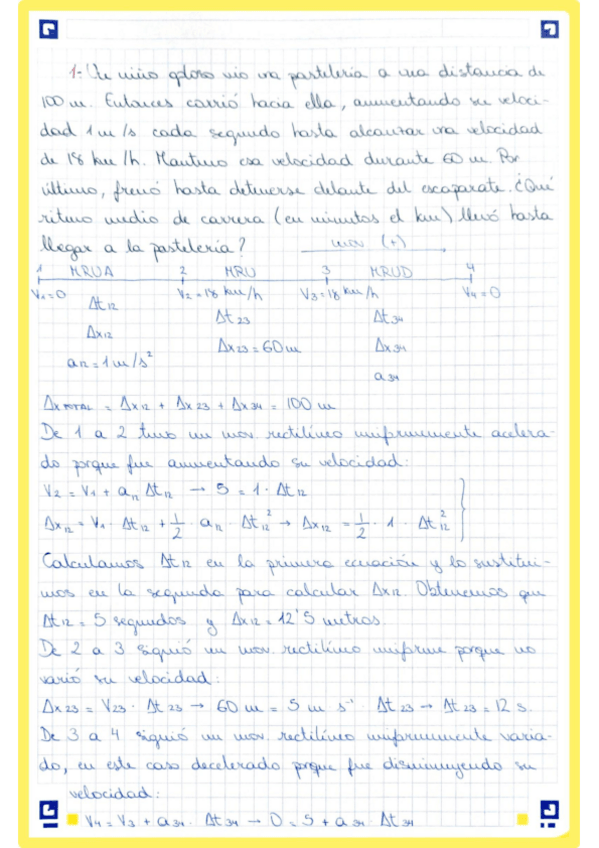 1- Un niño goloso vio una pastelería a una distancia de
100 m. Entonces corrió hacia ella, aumentando su veloci-
dad 1 m/s cada segundo hasta alcanzar una velocidad
de 18 km/h. Mantuvo esa velocidad durante 60 m. Por
último, frenó hasta detenerse delante del escaparate. ¿Qué
ritmo medio de carrera (en minutos el km) llevó hasta
llegar a la pastelería? mov (+)
1 MRUA 2 MRU 3 MRUD 4
V1=0 V2=18 km/h V3=18 km/h V4=0
Δt12 Δt23 Δt34
Δx12 Δx23=60m Δx34
a12=1m/s² a34
ΔxTOTAL = Δx12 + Δx23 + Δx34 = 100 m
De 1 a 2 tuvo un mov. rectilíneo uniformemente acelera-
do porque fue aumentando su velocidad:
V2 = V1 + a12 Δt12 → 5 = 1 · Δt12
Δx12 = V1 · Δt12 + 1/2 · a12 · Δt12² → Δx12 = 1/2 · 1 · Δt12²
Calculamos Δt12 en la primera ecuación y lo sustitui-
mos en la segunda para calcular Δx12. Obtenemos que
Δt12 = 5 segundos y Δx12 = 12'5 metros.
De 2 a 3 siguió un mov. rectilíneo uniforme porque no
varió su velocidad:
Δx23 = V23 · Δt23 → 60 m = 5 m s⁻¹ · Δt23 → Δt23 = 12 s.
De 3 a 4 siguió un mov. rectilíneo uniformemente varia-
do, en este caso decelerado porque fue disminuyendo su
velocidad:
V4 = V3 + a34 · Δt34 → 0 = 5 + a34 · Δt34